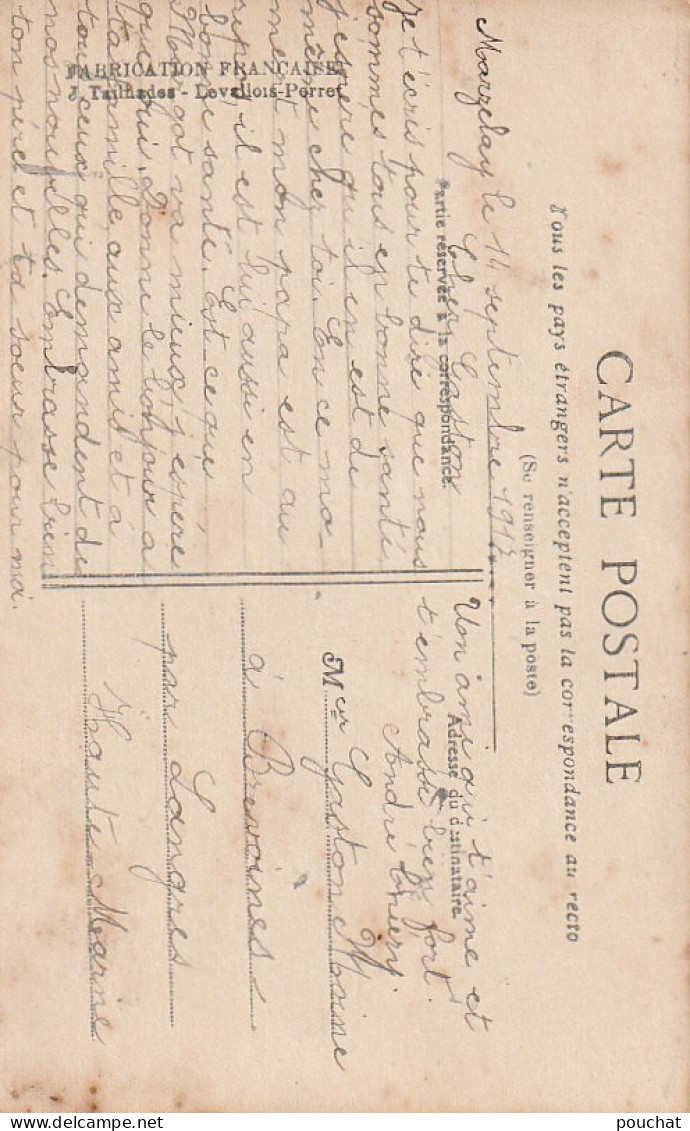 CARTE POSTALE
Tous les pays étrangers n'acceptent pas la correspondance au recto
(Se renseigner à la poste)
Partie réservée à la correspondance.
Adresse du destinataire
Marzelay le 14 septembre 1917
Cher Gaston
Je t'écris pour te dire que nous
sommes tous en bonne santé
j'espère qu'il en est de
même cher toi. En ce mo-
ment mon papa est au
repos, il est lui aussi en
bonne santé. Est ce que
Margot va mieux, j'espère
que oui. Donne le bonjour a
ta famille aux amis et à
tout ceux qui demandent de
nos nouvelles. Embrasse bien
ton père et ta soeur pour moi.
Un ami qui t'aime et
t'embrasse bien fort
André Thiery.
Meur Gaston Moine
à Brevoines
par Langres
Haute Marne
FABRICATION FRANÇAISE
J. Tailhades - Levallois-Perret
pouchat